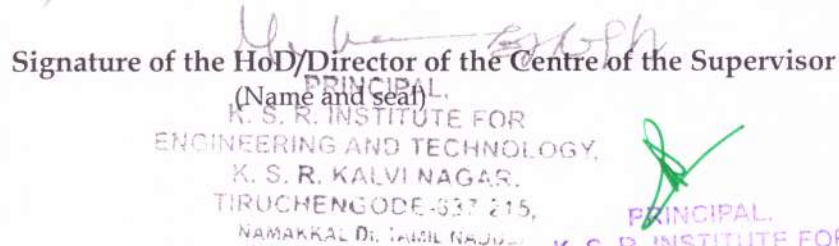 Signature of the HoD/Director of the Centre of the Supervisor
(Name and seal)
PRINCIPAL,
K. S. R. INSTITUTE FOR
ENGINEERING AND TECHNOLOGY,
K. S. R. KALVI NAGAR,
TIRUCHENGODE-637 215,
NAMAKKAL Dt, TAMIL
PRINCIPAL,
K. S. R. INSTITUTE FOR